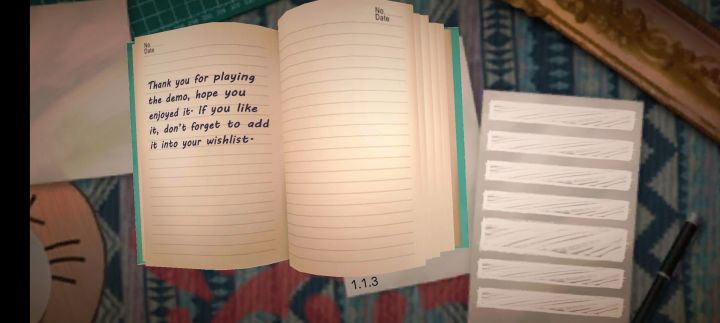 No.
Date
Thank you for playing
the demo, hope you
enjoyed it. If you like
it, don't forget to add
it into your wishlist.
No.
Date
1.1.3